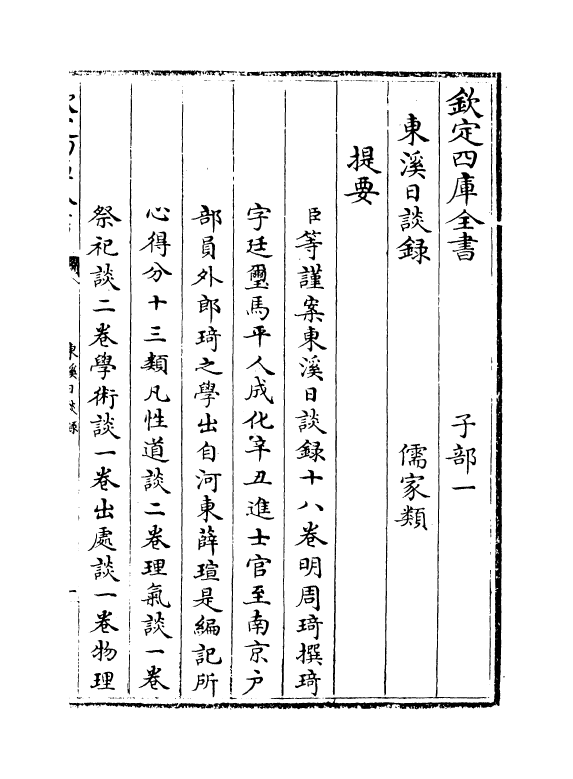 欽定四庫全書　子部一
東溪日談録　儒家類
提要
臣等謹案東溪日談録十八卷明周琦撰琦
字廷璽馬平人成化辛丑進士官至南京户
部員外郎琦之學出自河東薛瑄是編記所
心得分十三類凡性道談二卷理氣談一卷
祭祀談二卷學術談一卷出處談一卷物理
東溪日談録
一